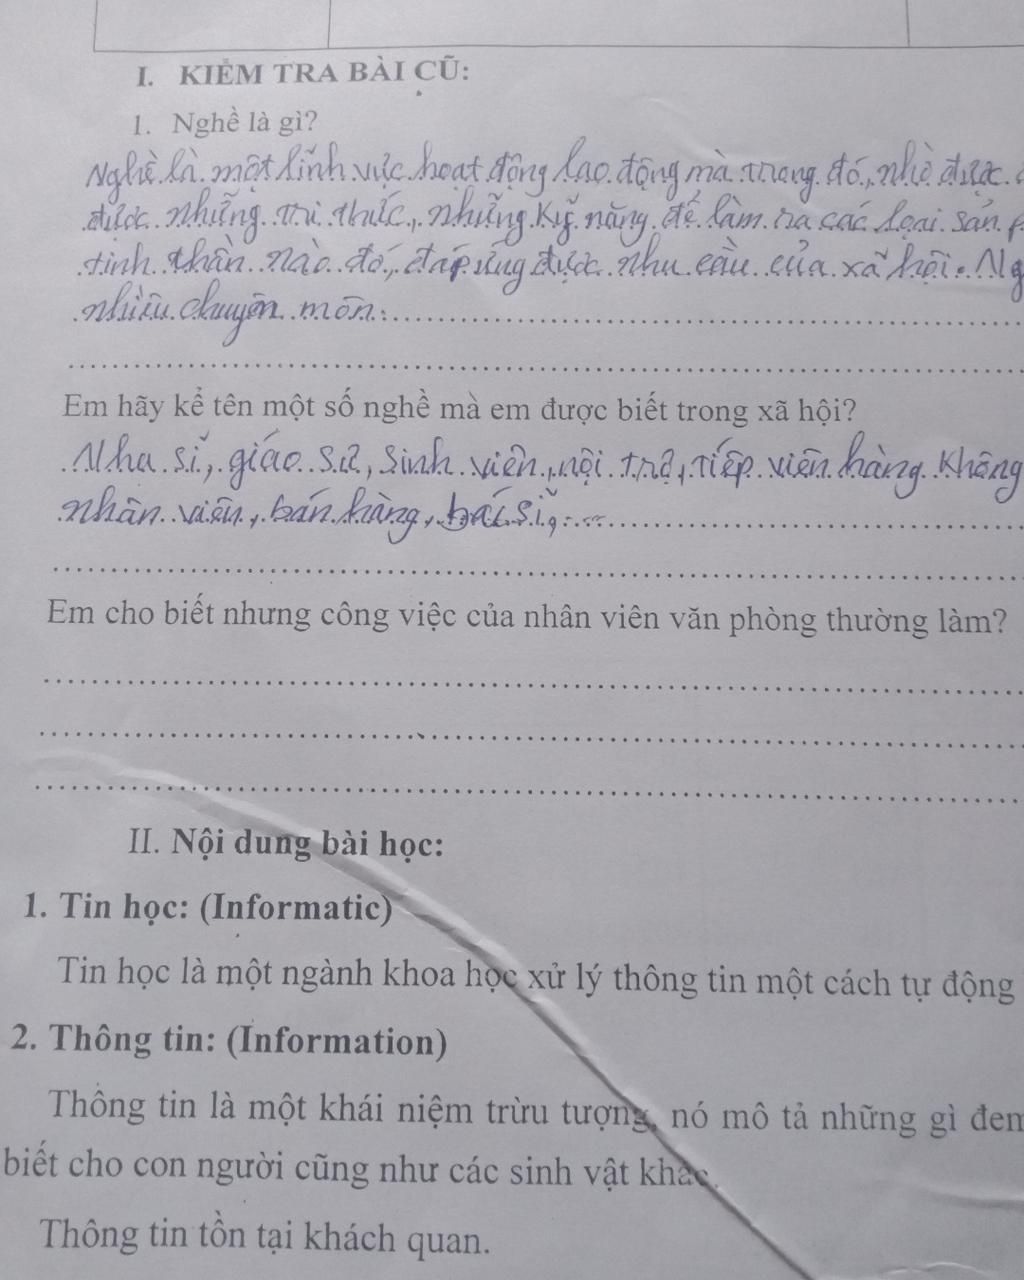 I. KIỂM TRA BÀI CŨ:
1. Nghề là gì?
Nghề là một lĩnh vực hoạt động lao động mà trong đó, nhờ được
được những tri thức, những kỹ năng để làm ra các loại sản
tinh thần nào đó, đáp ứng được nhu cầu của xã hội. Ng
nhiều chuyên môn.
Em hãy kể tên một số nghề mà em được biết trong xã hội?
Nha sĩ, giáo sư, sinh viên, nội trợ, tiếp viên hàng không
nhân viên, bán hàng, bác sĩ,...
Em cho biết nhưng công việc của nhân viên văn phòng thường làm?
II. Nội dung bài học:
1. Tin học: (Informatic)
Tin học là một ngành khoa học xử lý thông tin một cách tự động
2. Thông tin: (Information)
Thông tin là một khái niệm trừu tượng, nó mô tả những gì đem
biết cho con người cũng như các sinh vật khác.
Thông tin tồn tại khách quan.